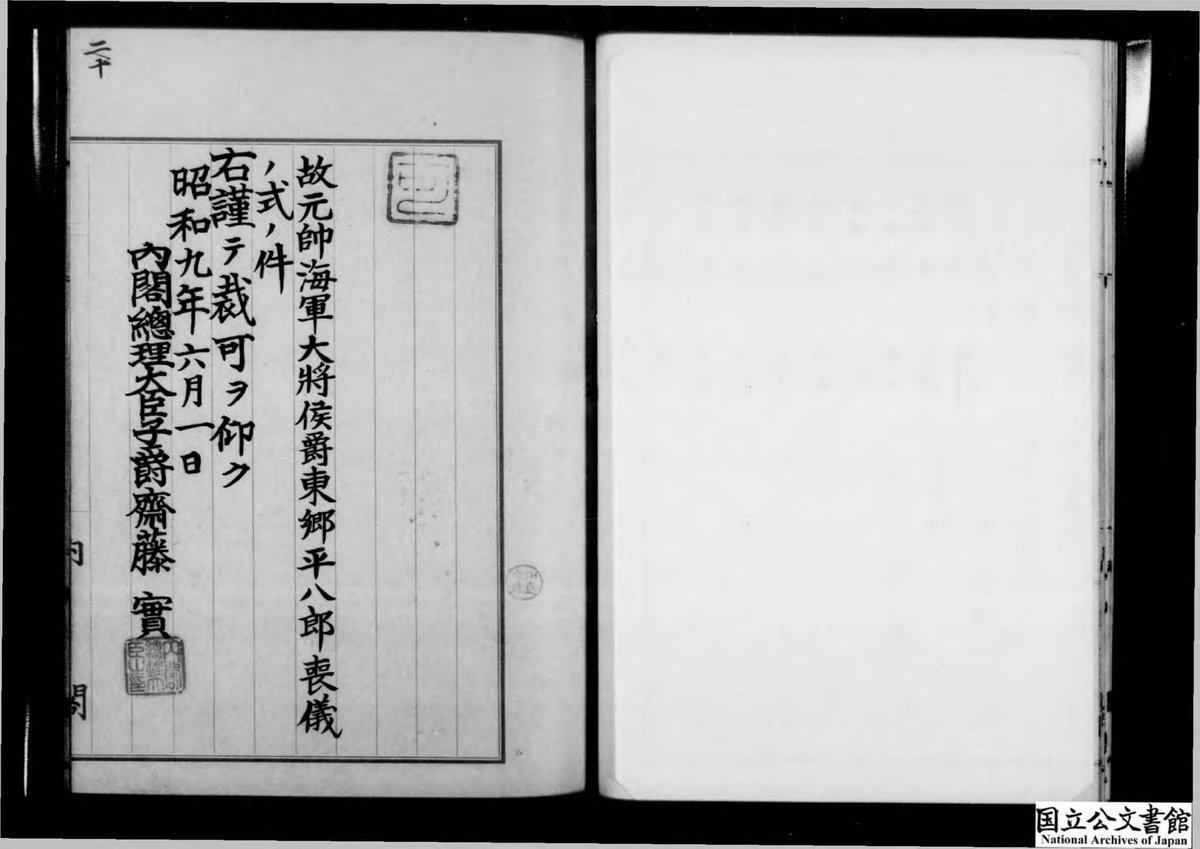 二十
故元帥海軍大将侯爵東郷平八郎喪儀
ノ式ノ件
右謹テ裁可ヲ仰ク
昭和九年六月一日
內閣總理大臣子爵齋藤實
內閣
国立公文書館
National Archives of Japan